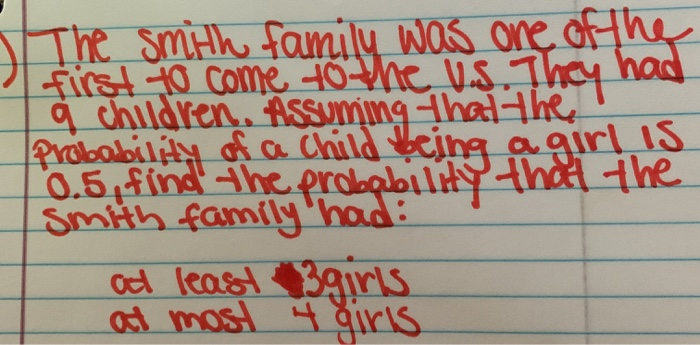 ) The smith family was one of the
first to come to the U.S. They had
9 children. Assuming that the
Probability of a child being a girl is
0.5, find the probability that the
Smith family had:
at least 3 girls
at most 4 girls